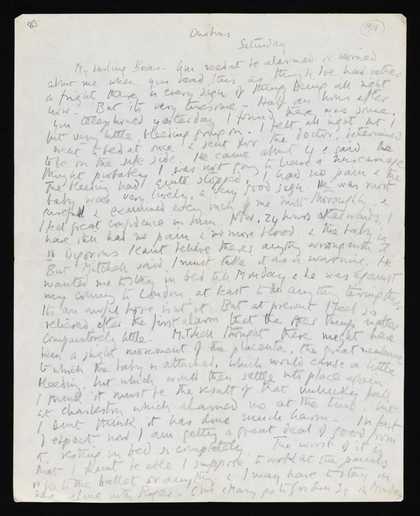 1918
Durbins
Saturday
My darling Bear. You needn't be alarmed or worried
about me when you read this as though I've had rather
a fright there is every sign of things being all right
now. But it's very tiresome. Half an hour after
you telephoned yesterday I found there was some
but very little bleeding going on. I felt all right but I
went to bed at once & sent for the doctor, determined
to be on the safe side. He came about 4 & said he
thought probably I was not going to have a miscarriage
the bleeding had quite stopped, I had no pain & the
baby was very lively, a very good sign. He was most
careful & examined every inch of me most thoroughly &
I feel great confidence in him. Now, 24 hours afterwards, I
have had no pain & no more blood & the baby is
so vigorous I can't believe there's anything wrong with it.
But Mitchell said I must take it as a warning. He
wanted me to stay in bed till Monday & he was against
my coming to London at least to do anything
It's an awful bore, isn't it. But at present I feel so
relieved after the first alarm that the other things matter
comparatively little. Mitchell thought there might have
been a slight movement of the placenta, the great membrane
to which the baby is attached, which would cause a little
bleeding, but which would then settle into place again.
I think it must be the result of that unlucky fall
at Charleston which alarmed us at the time, but
I don't think it has done much harm. In fact
I expect now I am getting a great deal of good from
resting in bed so completely. The worst of it is
that I shan't be able I suppose to work at the
or go to the ballet or anything & I may have to stay in
is Monday